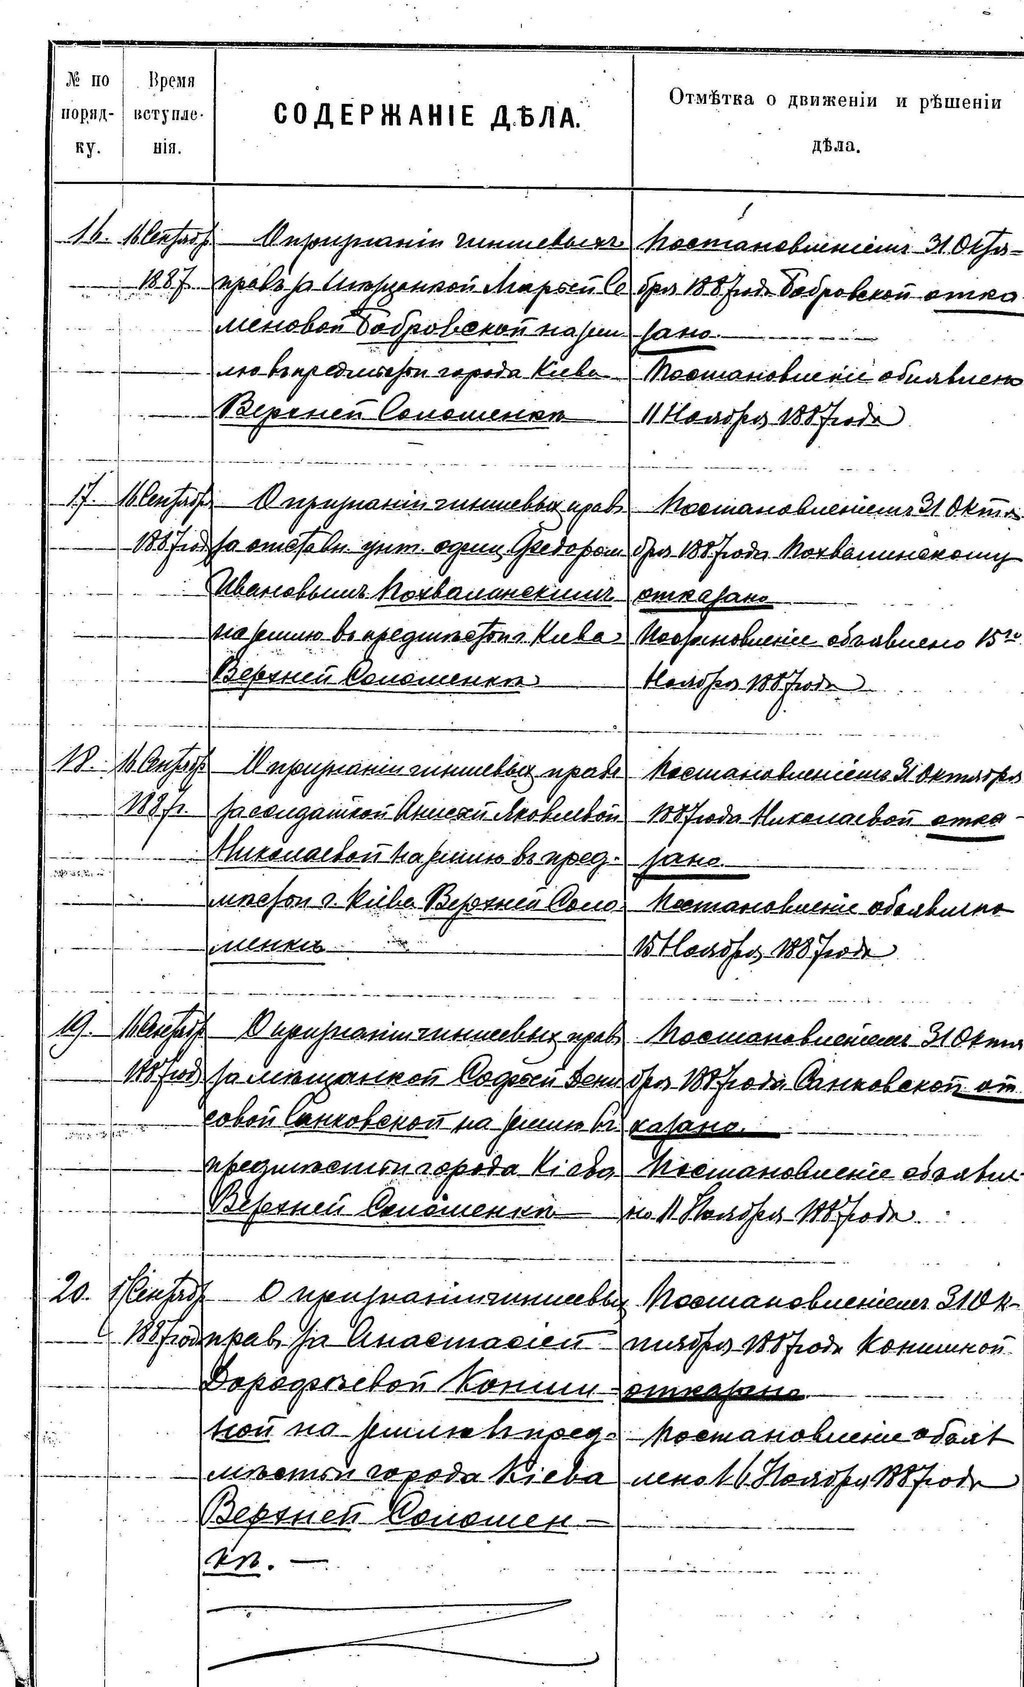 № по порядку.
Время вступленія.
СОДЕРЖАНІЕ ДѢЛА.
Отмѣтка о движеніи и рѣшеніи
дѣла.
16. 16 Сентябр.
1887
О признаніи чиншевыхъ
правъ за мѣщанкой Марьей Се
меновой Бобровской на зем
лю въ предмѣстьи города Кіева
Верхней Соломенкѣ
Постановленіемъ 31 Октя-
бря 1887 года Бобровской отка
зано.
Постановленіе объявлено
11 Ноября 1887 года
17. 16 Сентябр.
1887 год
О признаніи чиншевыхъ правъ
за отставн. унт. офиц. Федоромъ
Ивановымъ Похвалинскимъ
на землю въ предмѣстьи г. Кіева
Верхней Соломенкѣ
Постановленіемъ 31 Октя
бря 1887 года Похвалинскому
отказано
Постановленіе объявлено 15го
Ноября 1887 года
18. 16 Сентябр
1887 г.
О признаніи чиншевыхъ правъ
за солдаткой Анисьей Яковлевой
Николаевой на землю въ пред-
мѣстьи г. Кіева Верхней Соло-
менкѣ
Постановленіемъ 31 Октября
1887 года Николаевой отка-
зано.
Постановленіе объявлено
15 Ноября 1887 года
19. 16 Сентябр
1887 год
О признаніи чиншевыхъ правъ
за мѣщанкой Софьей Дени
совой Санковской на землю въ
предмѣстьи города Кіева
Верхней Соломенкѣ
Постановленіемъ 31 Октя
бря 1887 года Санковской от
казано.
Постановленіе объявле-
но 11 Ноября 1887 года.
20. Сентябр
1887 года
О признаніи чиншевыхъ
правъ за Анастасіей
Дорофѣевой Коншин-
ной на землю въ пред-
мѣстьи города Кіева
Верхней Соломен-
кѣ. —
Постановленіемъ 31 Ок-
тября 1887 года Коншиной
отказано
Постановленіе объяв
лено 16 Ноября 1887 года